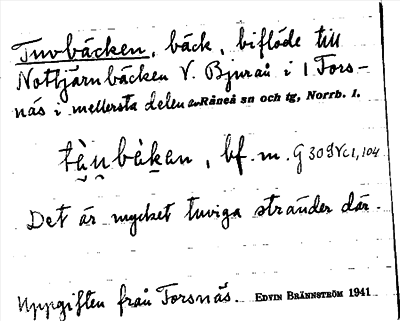 Tuvbäcken, bäck, biflöde till
Nottjärnbäcken V. Bjuraå i 1 Fors-
näs i mellersta delen av Råneå sn och tg, Norrb. l.
bf. m. G 309 Vc1, 104
Det är mycket tuviga stränder där.
Uppgiften från Forsnäs. EDVIN BRÄNNSTRÖM 1941